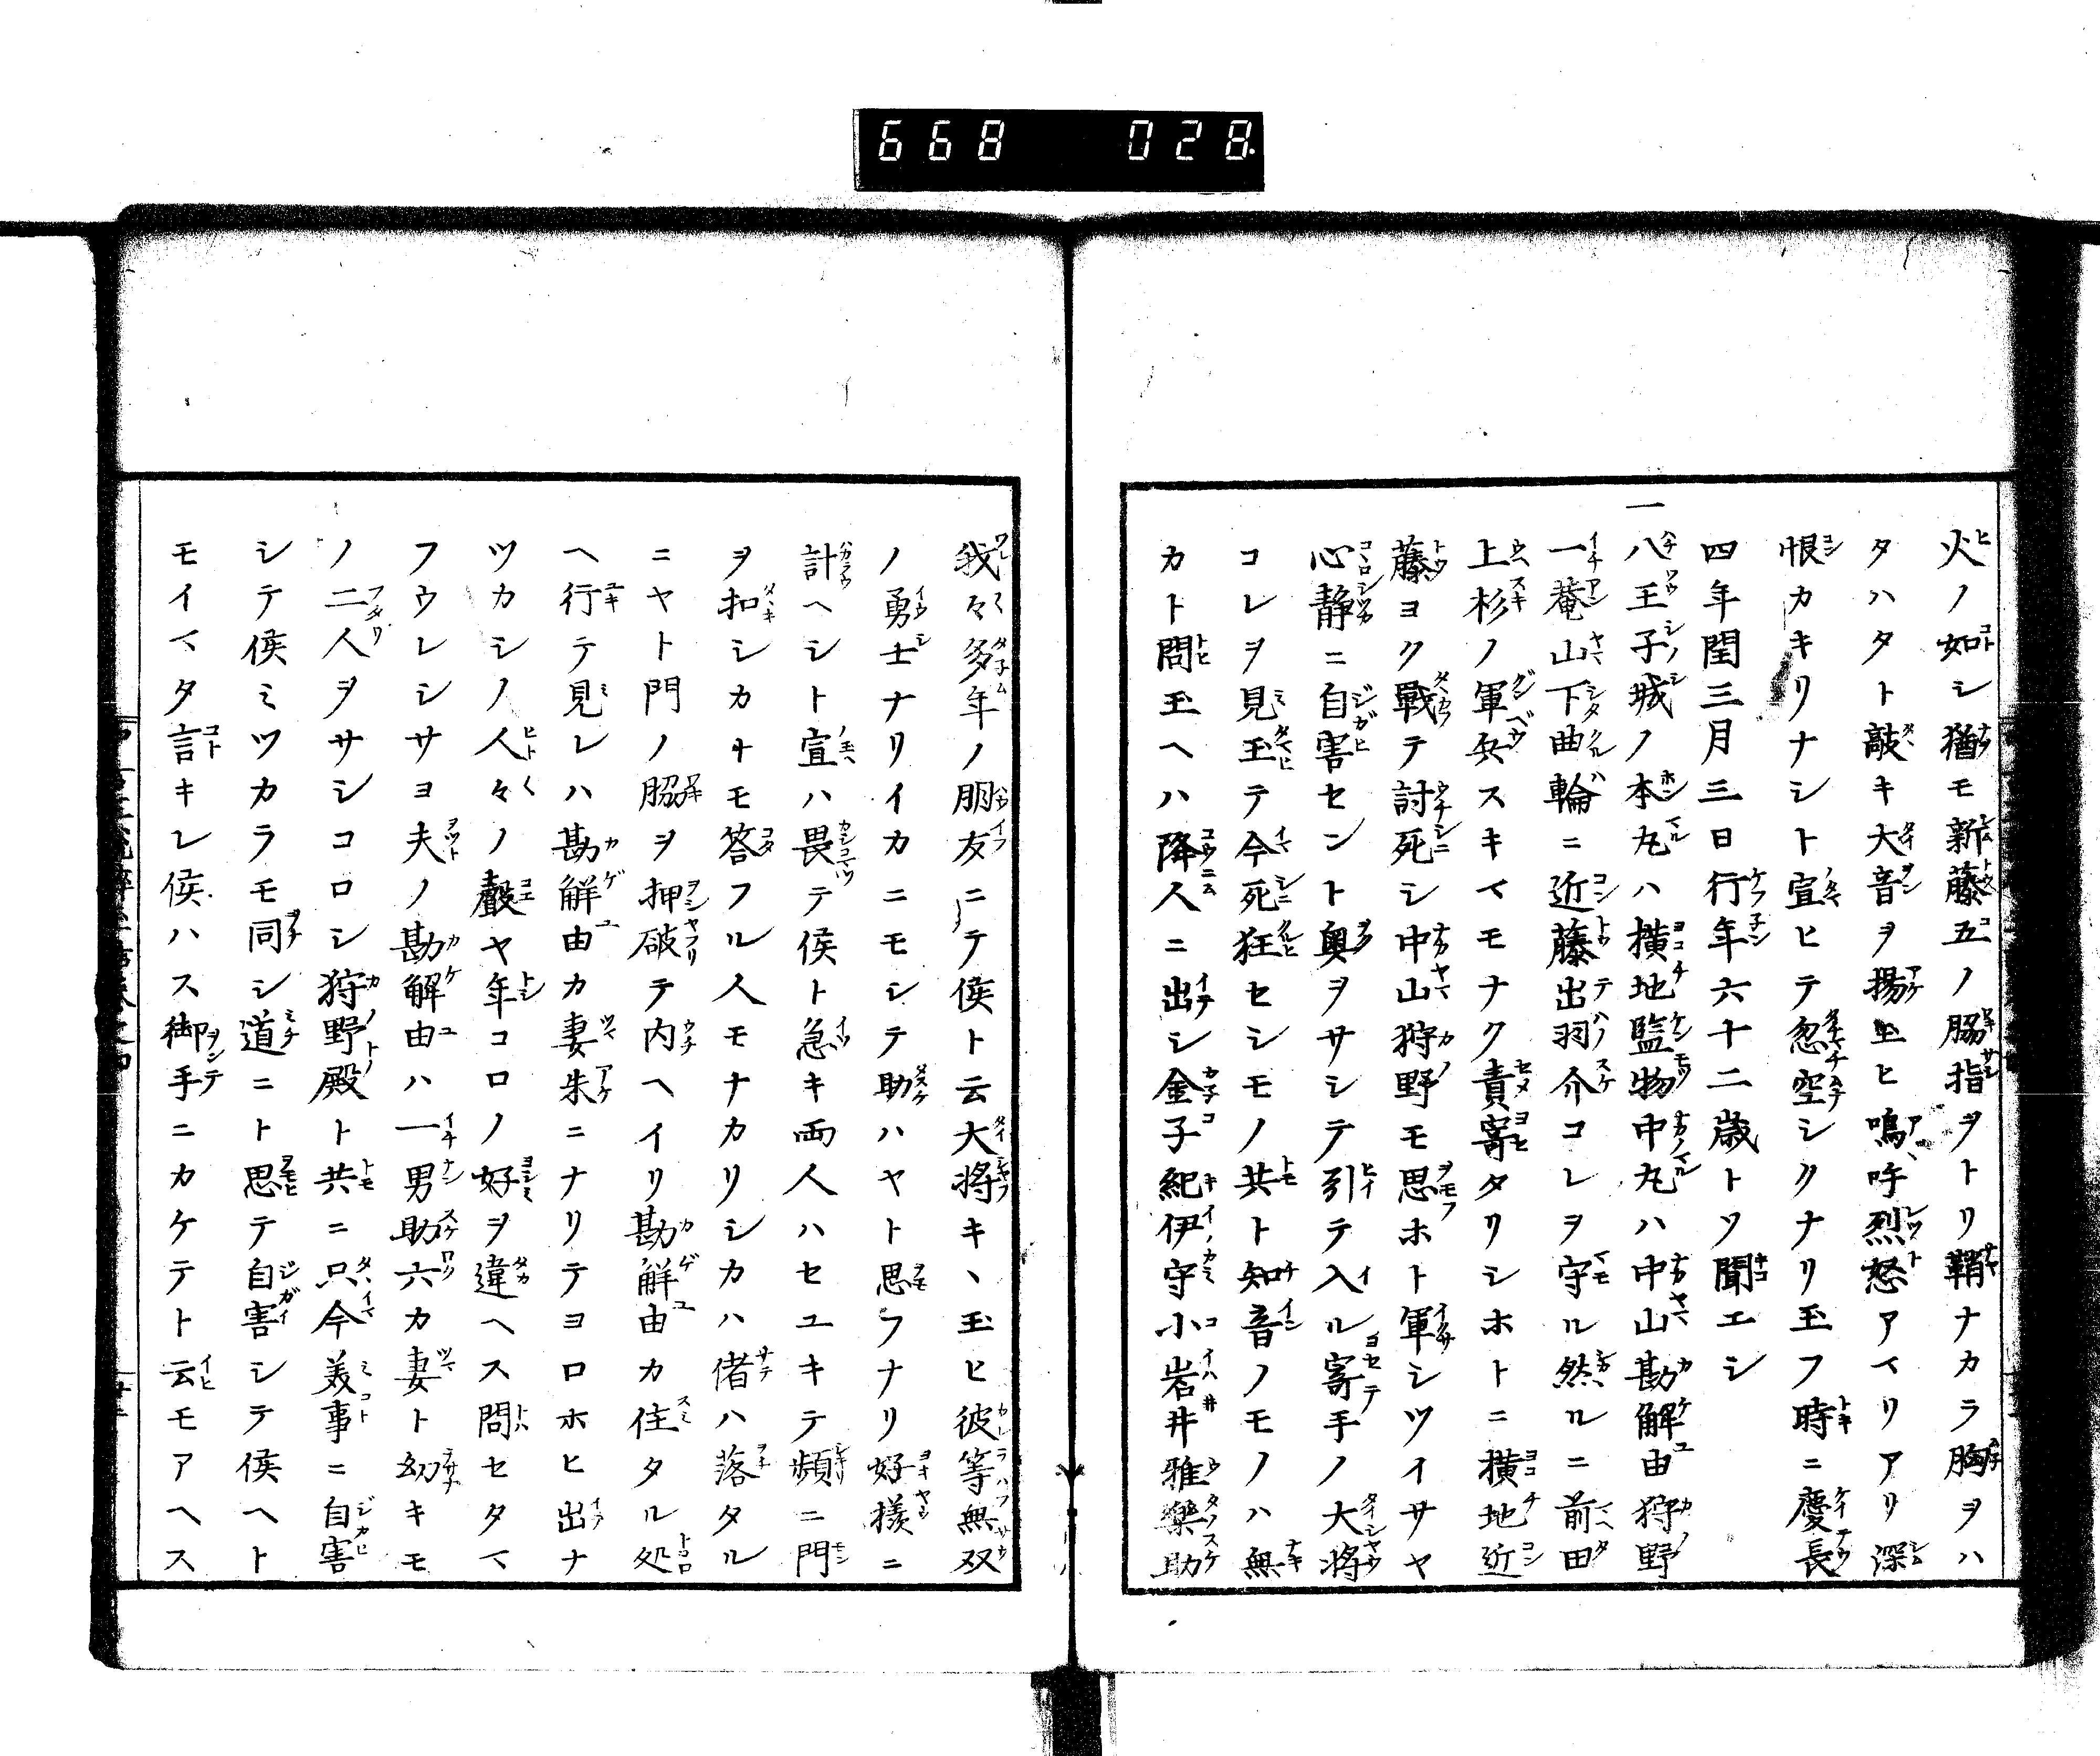 668 028
火ノ如シ猶モ新藤五ノ脇指ヲトリ鞘ナカラ胸ヲハ
タハタト敲キ大音ヲ揚玉ヒ嗚呼烈怒アイリアリ深
恨カキリナシト宣ヒテ忽空シクナリ玉フ時ニ慶長
四年閏三月三日行年六十二歳トソ聞エシ
一八王子城ノ本丸ハ横地監物中丸ハ中山勘解由狩野
一菴山下曲輪ニ近藤出羽介コレヲ守ル然ルニ前田
上杉ノ軍兵スキマモナク責寄タリシホトニ横地近
藤ヨク戰テ討死シ中山狩野モ思ホト軍シツイサヤ
心静ニ自害セント奥ヲサシテ引テ入ル寄手ノ大将
コレヲ見玉テ今死狂セシモノ共ト知音ノモノハ無
カト問玉ヘハ降人ニ出シ金子紀伊守小岩井雅樂助
我々多年ノ朋友ニテ候ト云大将キヽ玉ヒ彼等無双
ノ勇士ナリイカニモシテ助ハヤト思フナリ好様ニ
計ヘシト宣ハ畏テ候ト急キ両人ハセユキテ頻ニ門
ヲ扣シカ𪜈モ答フル人モナカリシカハ偖ハ落タル
ニヤト門ノ脇ヲ押破テ内ヘイリ勘解由カ住タル処
ヘ行テ見レハ勘解由カ妻朱ニナリテヨロホヒ出ナ
ツカシノ人々ノ聲ヤ年コロノ好ヲ違ヘス問セタマ
フウレシサヨ夫ノ勘解由ハ一男助六カ妻ト幼キモ
ノ二人ヲサシコロシ狩野殿ト共ニ只今美事ニ自害
シテ候ミツカラモ同シ道ニト思テ自害シテ候ヘト
モイマタ言キレ候ハス御手ニカケテト云モアヘス